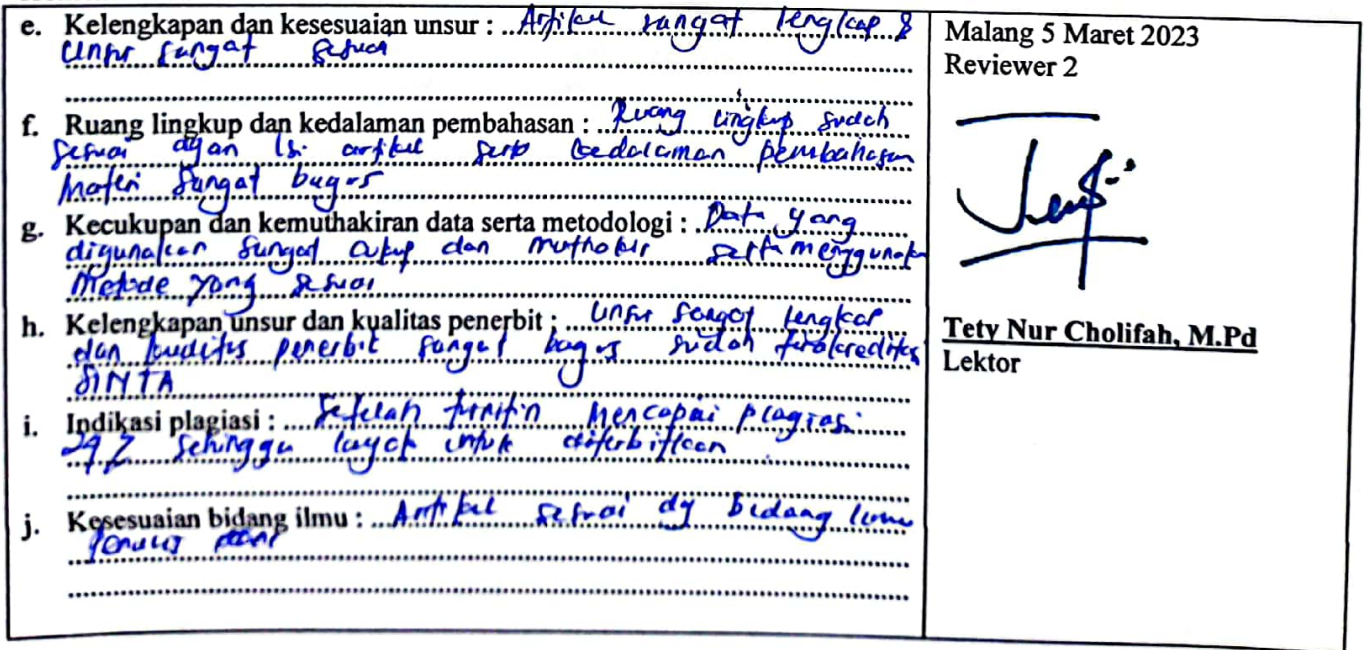 e. Kelengkapan dan kesesuaian unsur : Artikel sangat lengkap &
unsur sangat sesuai
f. Ruang lingkup dan kedalaman pembahasan : Ruang lingkup sudah
sesuai dgan isi artikel serta kedalaman pembahasan
materi sangat bagus
g. Kecukupan dan kemuthakiran data serta metodologi : Data yang
digunakan sangat cukup dan muthakir serta menggunakan
metode yang sesuai
h. Kelengkapan unsur dan kualitas penerbit : unsur sangat lengkap
dan kualitas penerbit sangat bagus sudah terakreditasi
SINTA
i. Indikasi plagiasi : Setelah turnitin mencapai plagiasi
sehingga layak untuk diterbitkan
j. Kesesuaian bidang ilmu : Artikel sesuai dg bidang ilmu
penulis
Malang 5 Maret 2023
Reviewer 2
Tety Nur Cholifah, M.Pd
Lektor